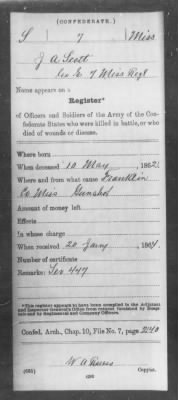 (CONFEDERATE.)
S 7 Miss
J A Scott
Co E, 7 Miss Regt
Name appears on a
Register*
of Officers and Soldiers of the Army of the Con-
federate States who were killed in battle, or who
died of wounds or disease.
Where born
When deceased 10 May, 1862.
Where and from what cause Franklin
Co Miss Gunshot
Amount of money left
Effects
In whose charge
When received 20 Jany, 1864.
Number of certificate
Remarks: Sev 447
*This register appears to have been compiled in the Adjutant
and Inspector General's Office from returns furnished by Surg-
eons and by Regimental and Company Officers.
Confed. Arch., Chap. 10, File No. 7, page 240
(635) Copyist.